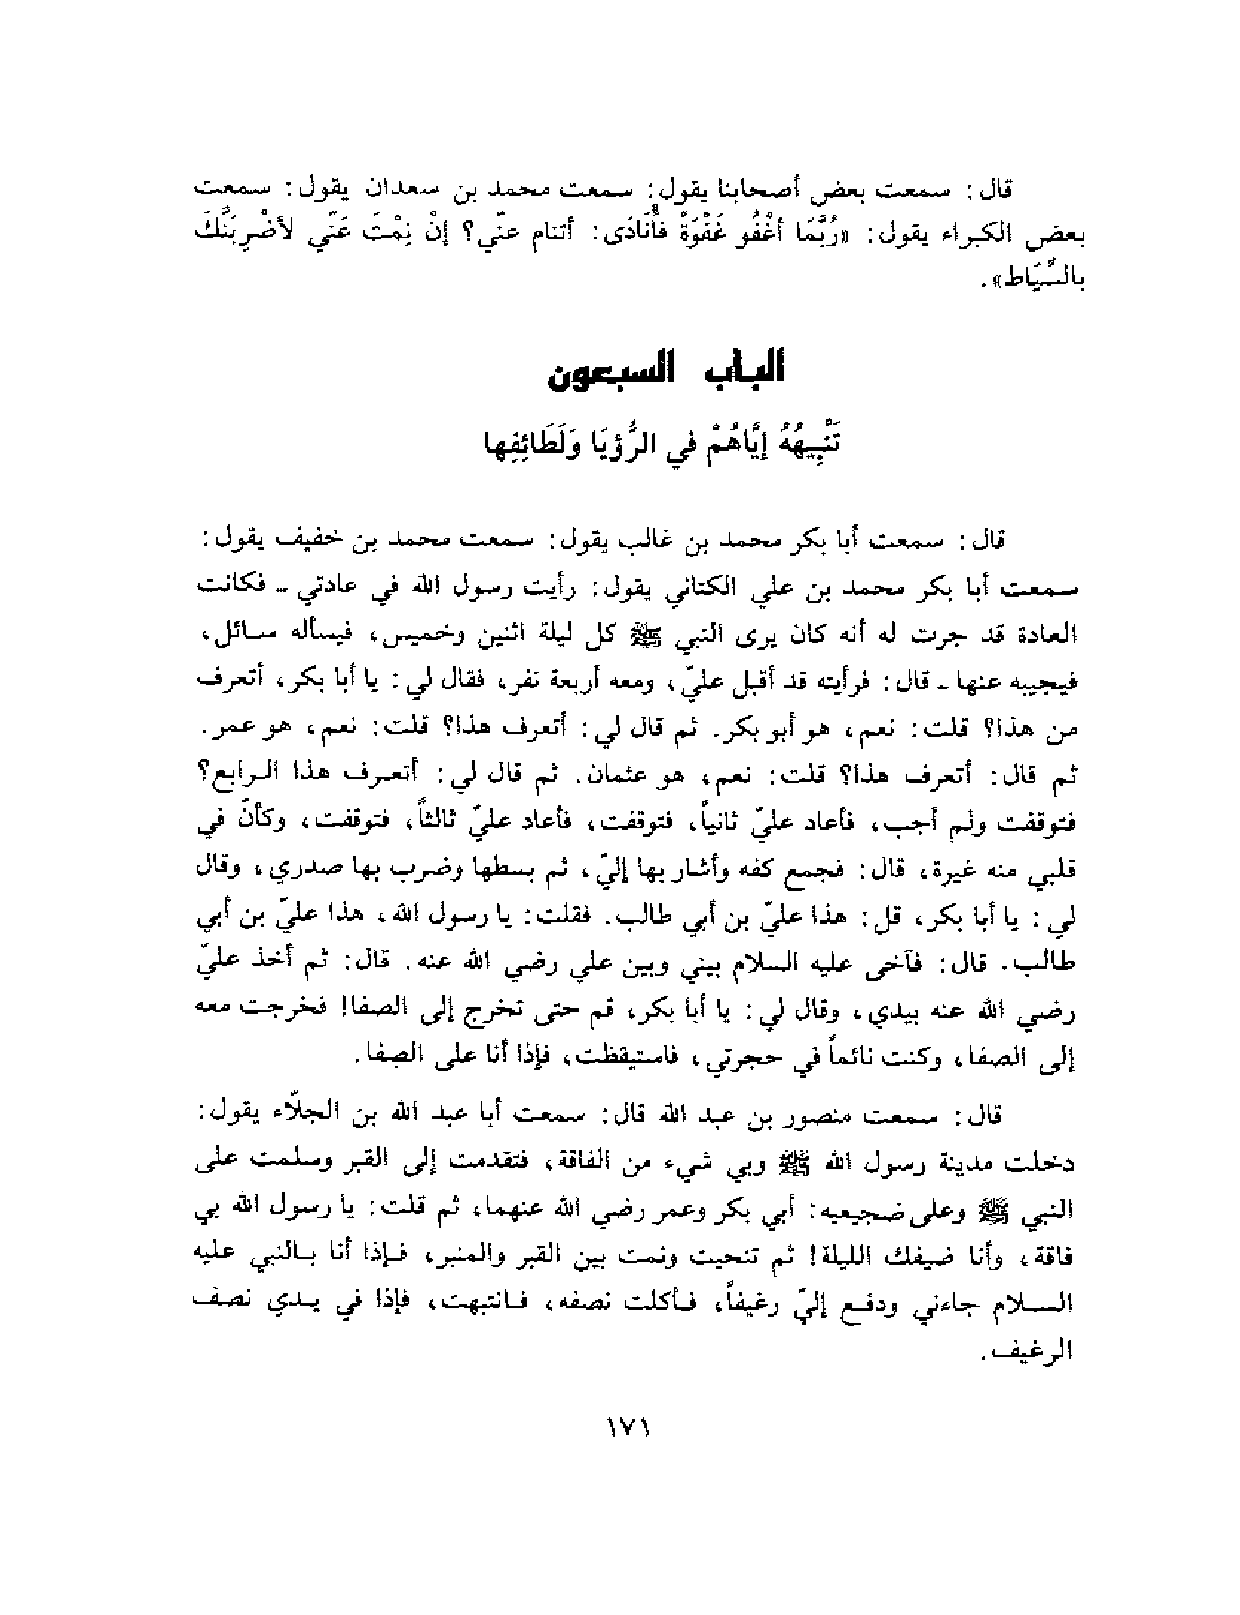 قال: سمعت بعض أصحابنا يقول: سمعت محمد بن سعدان يقول: سمعت
بعض الكبراء يقول: «رُبَّمَا أغْفُو غَفْوَةً فأُنَادَى: أتنام عنّي؟ إنْ نِمْتَ عَنِّي لأضْرِبَنَّكَ
بالسِّيَاط».
الباب السبعون
تَنْبِيهُهُ إيَّاهُمْ في الرُّؤيَا وَلَطَائِفِها
قال: سمعت أبا بكر محمد بن غالب يقول: سمعت محمد بن خفيف يقول:
سمعت أبا بكر محمد بن علي الكتاني يقول: رأيت رسول الله في عادتي - فكانت
العادة قد جرت له أنه كان يرى النبي ﷺ كل ليلة اثنين وخميس، فيسأله مسائل،
فيجيبه عنها - قال: فرأيته قد أقبل عليّ، ومعه أربعة نفر، فقال لي: يا أبا بكر، أتعرف
من هذا؟ قلت: نعم، هو أبو بكر. ثم قال لي: أتعرف هذا؟ قلت: نعم، هو عمر.
ثم قال: أتعرف هذا؟ قلت: نعم، هو عثمان. ثم قال لي: أتعرف هذا الرابع؟
فتوقفت ولم أجب، فأعاد عليّ ثانياً، فتوقفت، فأعاد عليّ ثالثاً، فتوقفت، وكأنَ في
قلبي منه غيرة، قال: فجمع كفه وأشار بها إليّ، ثم بسطها وضرب بها صدري، وقال
لي: يا أبا بكر، قل: هذا عليّ بن أبي طالب. فقلت: يا رسول الله، هذا عليّ بن أبي
طالب. قال: فآخى عليه السلام بيني وبين علي رضي الله عنه. قال: ثم أخذ عليّ
رضي الله عنه بيدي، وقال لي: يا أبا بكر، قم حتى تخرج إلى الصفا! فخرجت معه
إلى الصفا، وكنت نائماً في حجرتي، فاستيقظت، فإذا أنا على الصفا.
قال: سمعت منصور بن عبد الله قال: سمعت أبا عبد الله بن الجلاّء يقول:
دخلت مدينة رسول الله ﷺ وبي شيء من الفاقة، فتقدمت إلى القبر وسلمت على
النبي ﷺ وعلى ضجيعيه: أبي بكر وعمر رضي الله عنهما، ثم قلت: يا رسول الله بي
فاقة، وأنا ضيفك الليلة! ثم تنحيت ونمت بين القبر والمنبر، فإذا أنا بالنبي عليه
السلام جاءني ودفع إليّ رغيفاً، فأكلت نصفه، فانتبهت، فإذا في يدي نصف
الرغيف.
١٧١